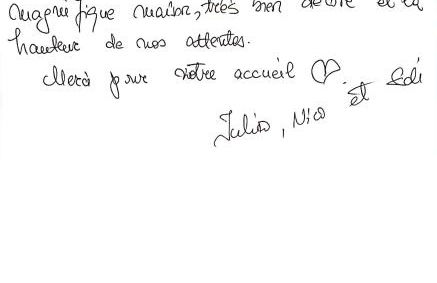 magnifique maison, très bien décoré et à la
hauteur de nos attentes.
Merci pour votre accueil ♡.
Julien, Nico et Edi